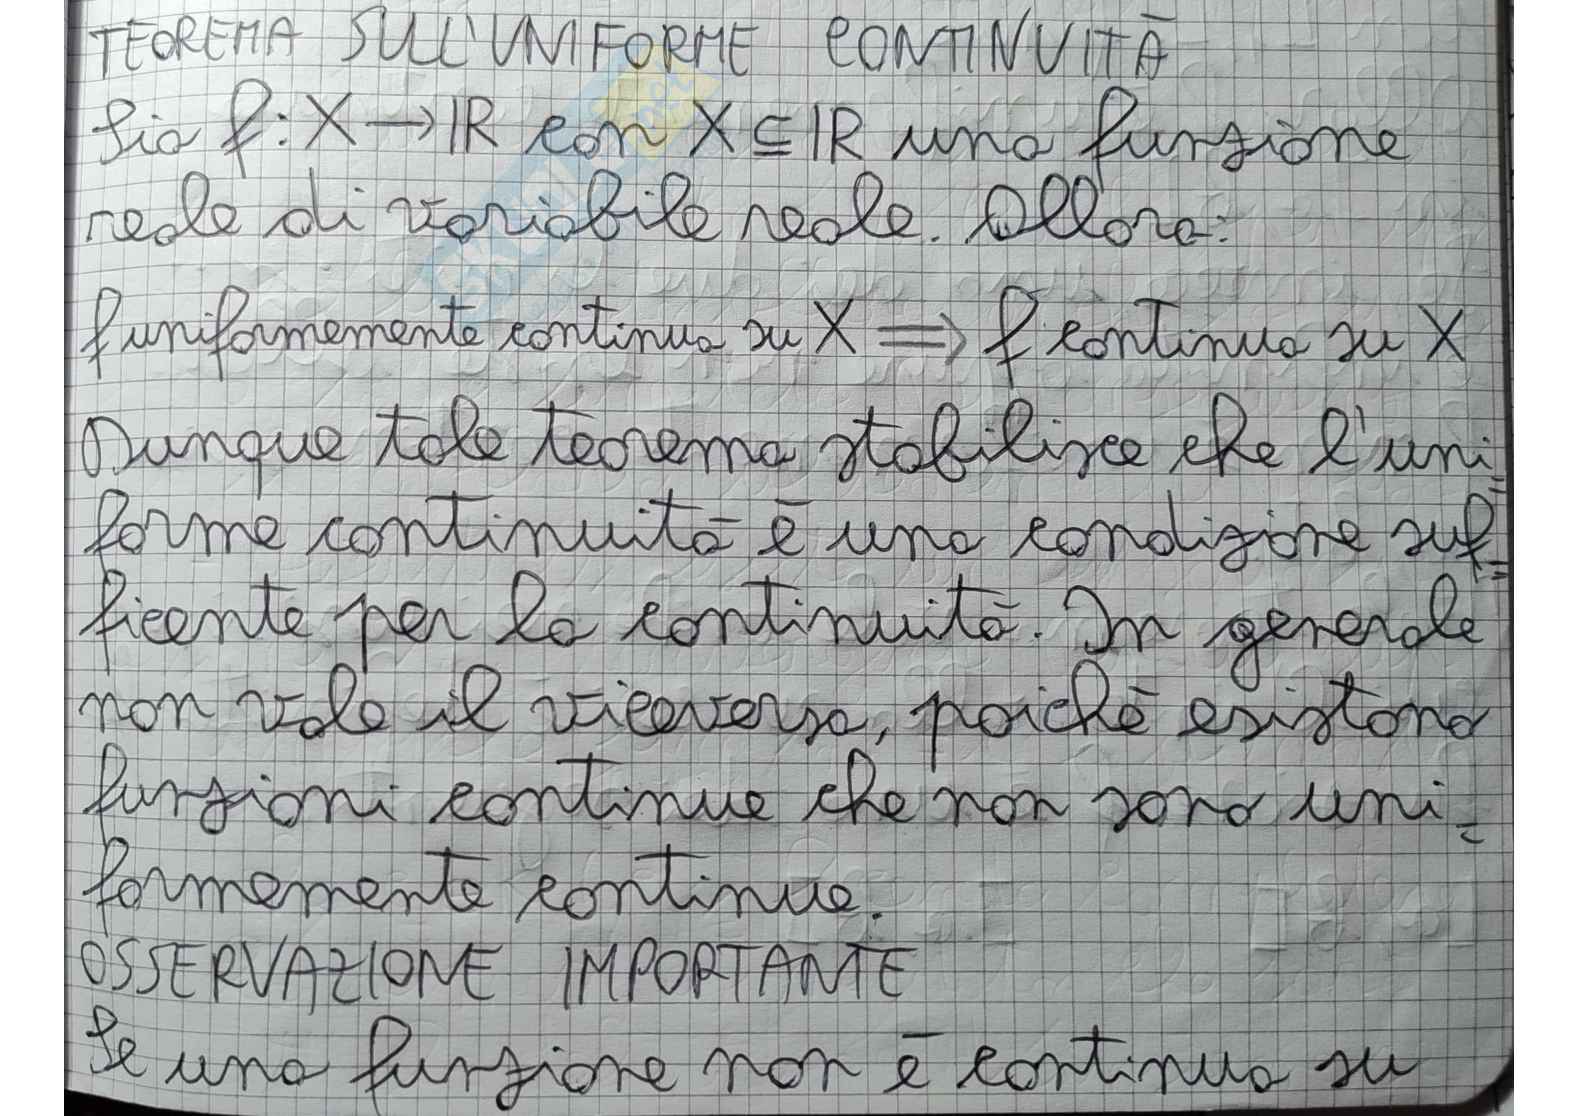 TEOREMA SULL'UNIFORME CONTINUITÀ
Sia f: X → ℝ con X ⊆ ℝ una funzione
reale di variabile reale. Allora:
f uniformemente continua su X ⟹ f continua su X
Dunque tale teorema stabilisce che l'uni=
forme continuità è una condizione suf=
ficente per la continuità. In generale
non vale il viceversa, poichè esistono
funzioni continue che non sono uni=
formemente continue.
OSSERVAZIONE IMPORTANTE
Se una funzione non è continua su